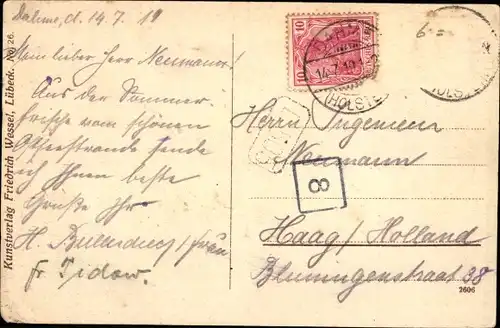 Dahme, d. 14.7.19
Mein lieber Herr Neumann!
Aus der Sommer-
frische vom schönen
Ostseestrande sende
ich Ihnen beste
Grüße Ihr
H. / Frau
fr Tidow.
Kunstverlag Friedrich Wessel, Lübeck. No. 126.
10 10
14.7.19
(HOLSTE
HOLST
Herrn Ingenieur
Neumann
8
Haag / Holland
Blumingenstraat 38
2606